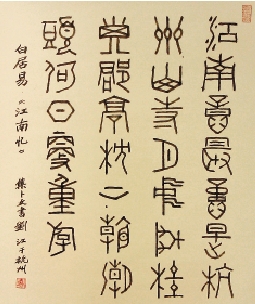 江南意最意是杭
州山寺月中尋桂
子郡亭枕上看潮
頭何日更重游
白居易《江南忆》。
集卜文書 劉江于杭州